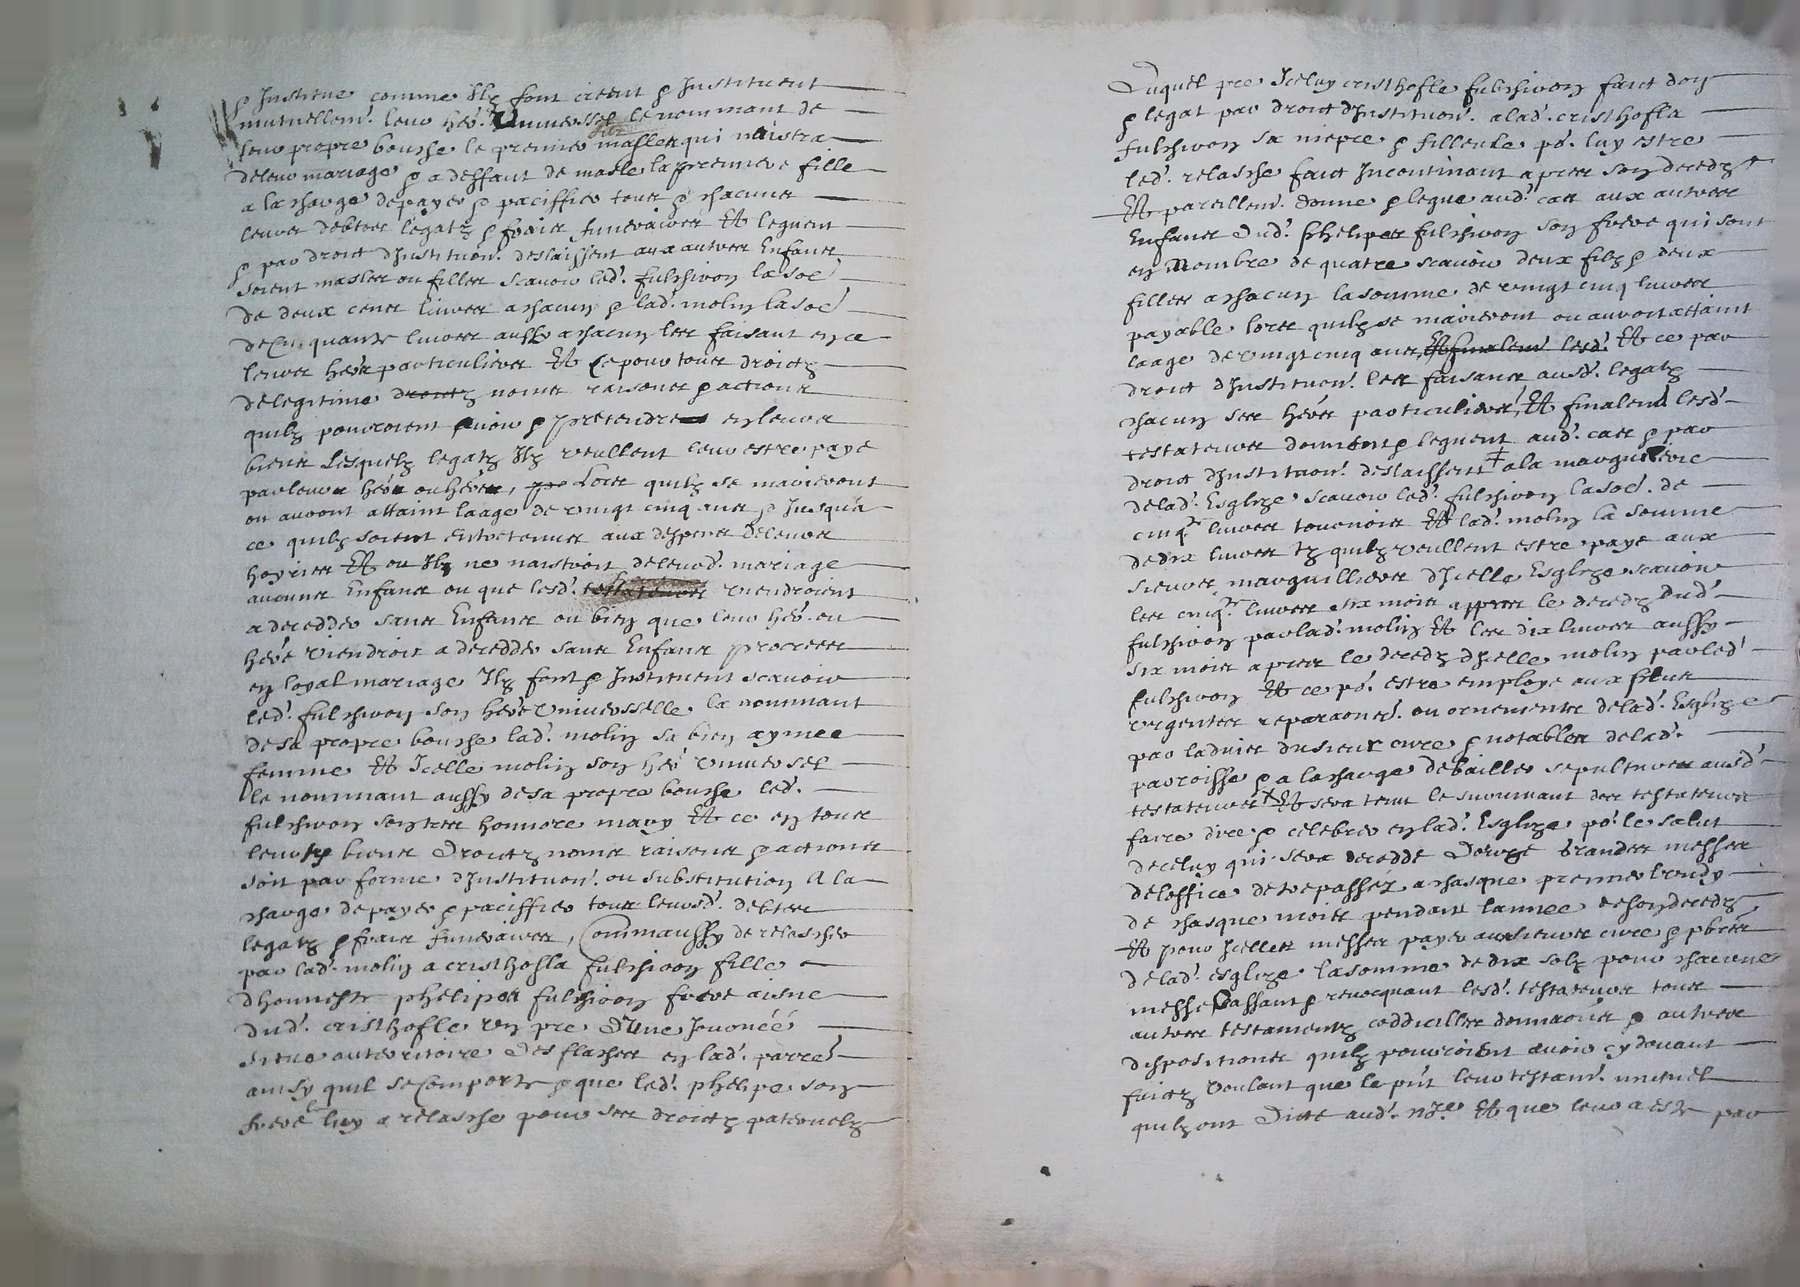 & Institue comme Ilz font creent & Instituent
mutuellem.t leur her. Universsel le nommant de
leur propre bouche le premier masle qui naistra
de leur mariage & a deffaut de masle la premiere fille
a la charge de payer & paciffier tous & chacuns
leurs debtes legatz & frais funeraires Et leguent
& par droict d'Institu.on deslaissent aux autres Enfans
soient masles ou filles scavoir led. fulchiron la soe
de deux cens livres a chacun & lad. molin la soe
de Cinquante livres aussy a chacun les faisant en ce
leurs hers particuliers Et Ce pour tous droictz
de legitime droictz noms raisons & actions
quilz pourroient avoir & pretendre en leurs
biens Lesquelz legatz Ilz veullent leur estre paye
par leurs hers ou here, Lors quilz se marieront
ou auront attaint laage de vingt cinq ans & Jusqua
ce quilz soient entretenus aux despens de leurs
hoyries Et ou Ilz ne naistroit de leurd. mariage
aucuns Enfans ou que lesd. testateurs viendroient
a decedder sans Enfans ou bien que leur her. ou
here viendroit a decedder sans Enfans procrees
en loyal mariage Ilz font & Instituent scavoir
led. fulchiron son here Universselle la nommant
de sa propre bouche lad. molin sa bien aymee
femme Et Icelle molin son her Universsel
le nommant aussy de sa propre bouche led.
fulchiron son tres honnore mary Et ce en tous
leurs biens droictz noms raisons & actions
soit par forme d'Institu.on ou substitution A la
charge de payer & paciffier tous leursd. debtes
legatz & frais funeraires, Comm aussy de relascher
par lad. molin a cristhofla fulchiron fille
dhonneste phelipes fulchiron frere aisne
dud. cristhofle un pre d'Une Journee
situe au terittoire des flaches en lad. parre.
ainsy quil se Comporte & que led. phelipe son
frere luy a relasche pour ses droictz paternelz
Duquel pre Iceluy cristhofle fulchiron faict don
& legat par droict d'Institu.on a lad. cristhofla
fulchiron sa niepce & filleule po.r luy estre
led. relasche faict Incontinant apres son decedz
Et pareillem.t donne & legue aud. cas aux autres
Enfans dud. phelipes fulchiron son frere qui sont
en Nombre de quatre scavoir deux filz & deux
filles a chacun la somme de vingt cinq livres
payable lors quilz se marieront ou auront attaint
laage de vingt cinq ans, Et finalem.t lesd. Et ce par
droict d'Institu.on les faisans ausd. legatz
chacun ses hers particuliers, Et finalem.t lesd.
testateurs donnent & leguent aud. cas & par
droict d'Institu.on deslaissent a la marguillerie
de lad. Esglize scavoir led. fulchiron la soe. de
cinq.te livres tournois Et lad. molin la somme
de dix livres tz quilz veullent estre paye aux
sieurs marguilliers d'Icelle Esglize scavoir
les cinq.te livres six mois apres le decedz dud.
fulchiron par lad. molin Et les dix livres aussy
six mois apres le decedz d'Icelle molin par led.
fulchiron Et ce po.r estre employe aux plus
urgentes repara.ons ou ornements de lad. Esglize
par ladvis du sieur cure & notables de lad.
parroisse & a la charge de bailler sepulture ausd.
testateurs Et sera tenu le survivant des testateurs
faire dire & celebrer en lad. Esglize po.r le salut
de celuy qui sera decedde Douze Grandes messes
de loffice de trepassez a chasque premier lundy
de chasque mois pendant lannee de son decedz
Et pour Icelles messes payer aux sieurs cure & pbres
de lad. esglize la somme de dix solz pour chacune
messe Cassant & revocquant lesd. testateurs tous
autres testaments coddicilles dona.ons & autres
dispositions quilz pourroient avoir cy devant
faictz Voulant que le pnt leur testam.t mutuel
quilz ont Dicte aud. n.re Et que leur a este par